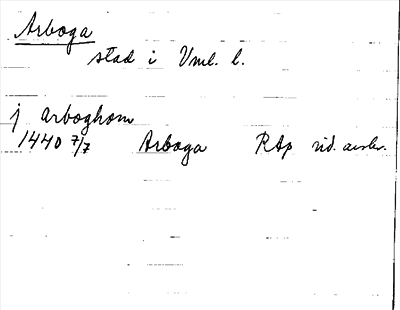 Arboga
stad i Vml. l.
j arboghom
1440 7/7 Arboga RAp vid. avskr.